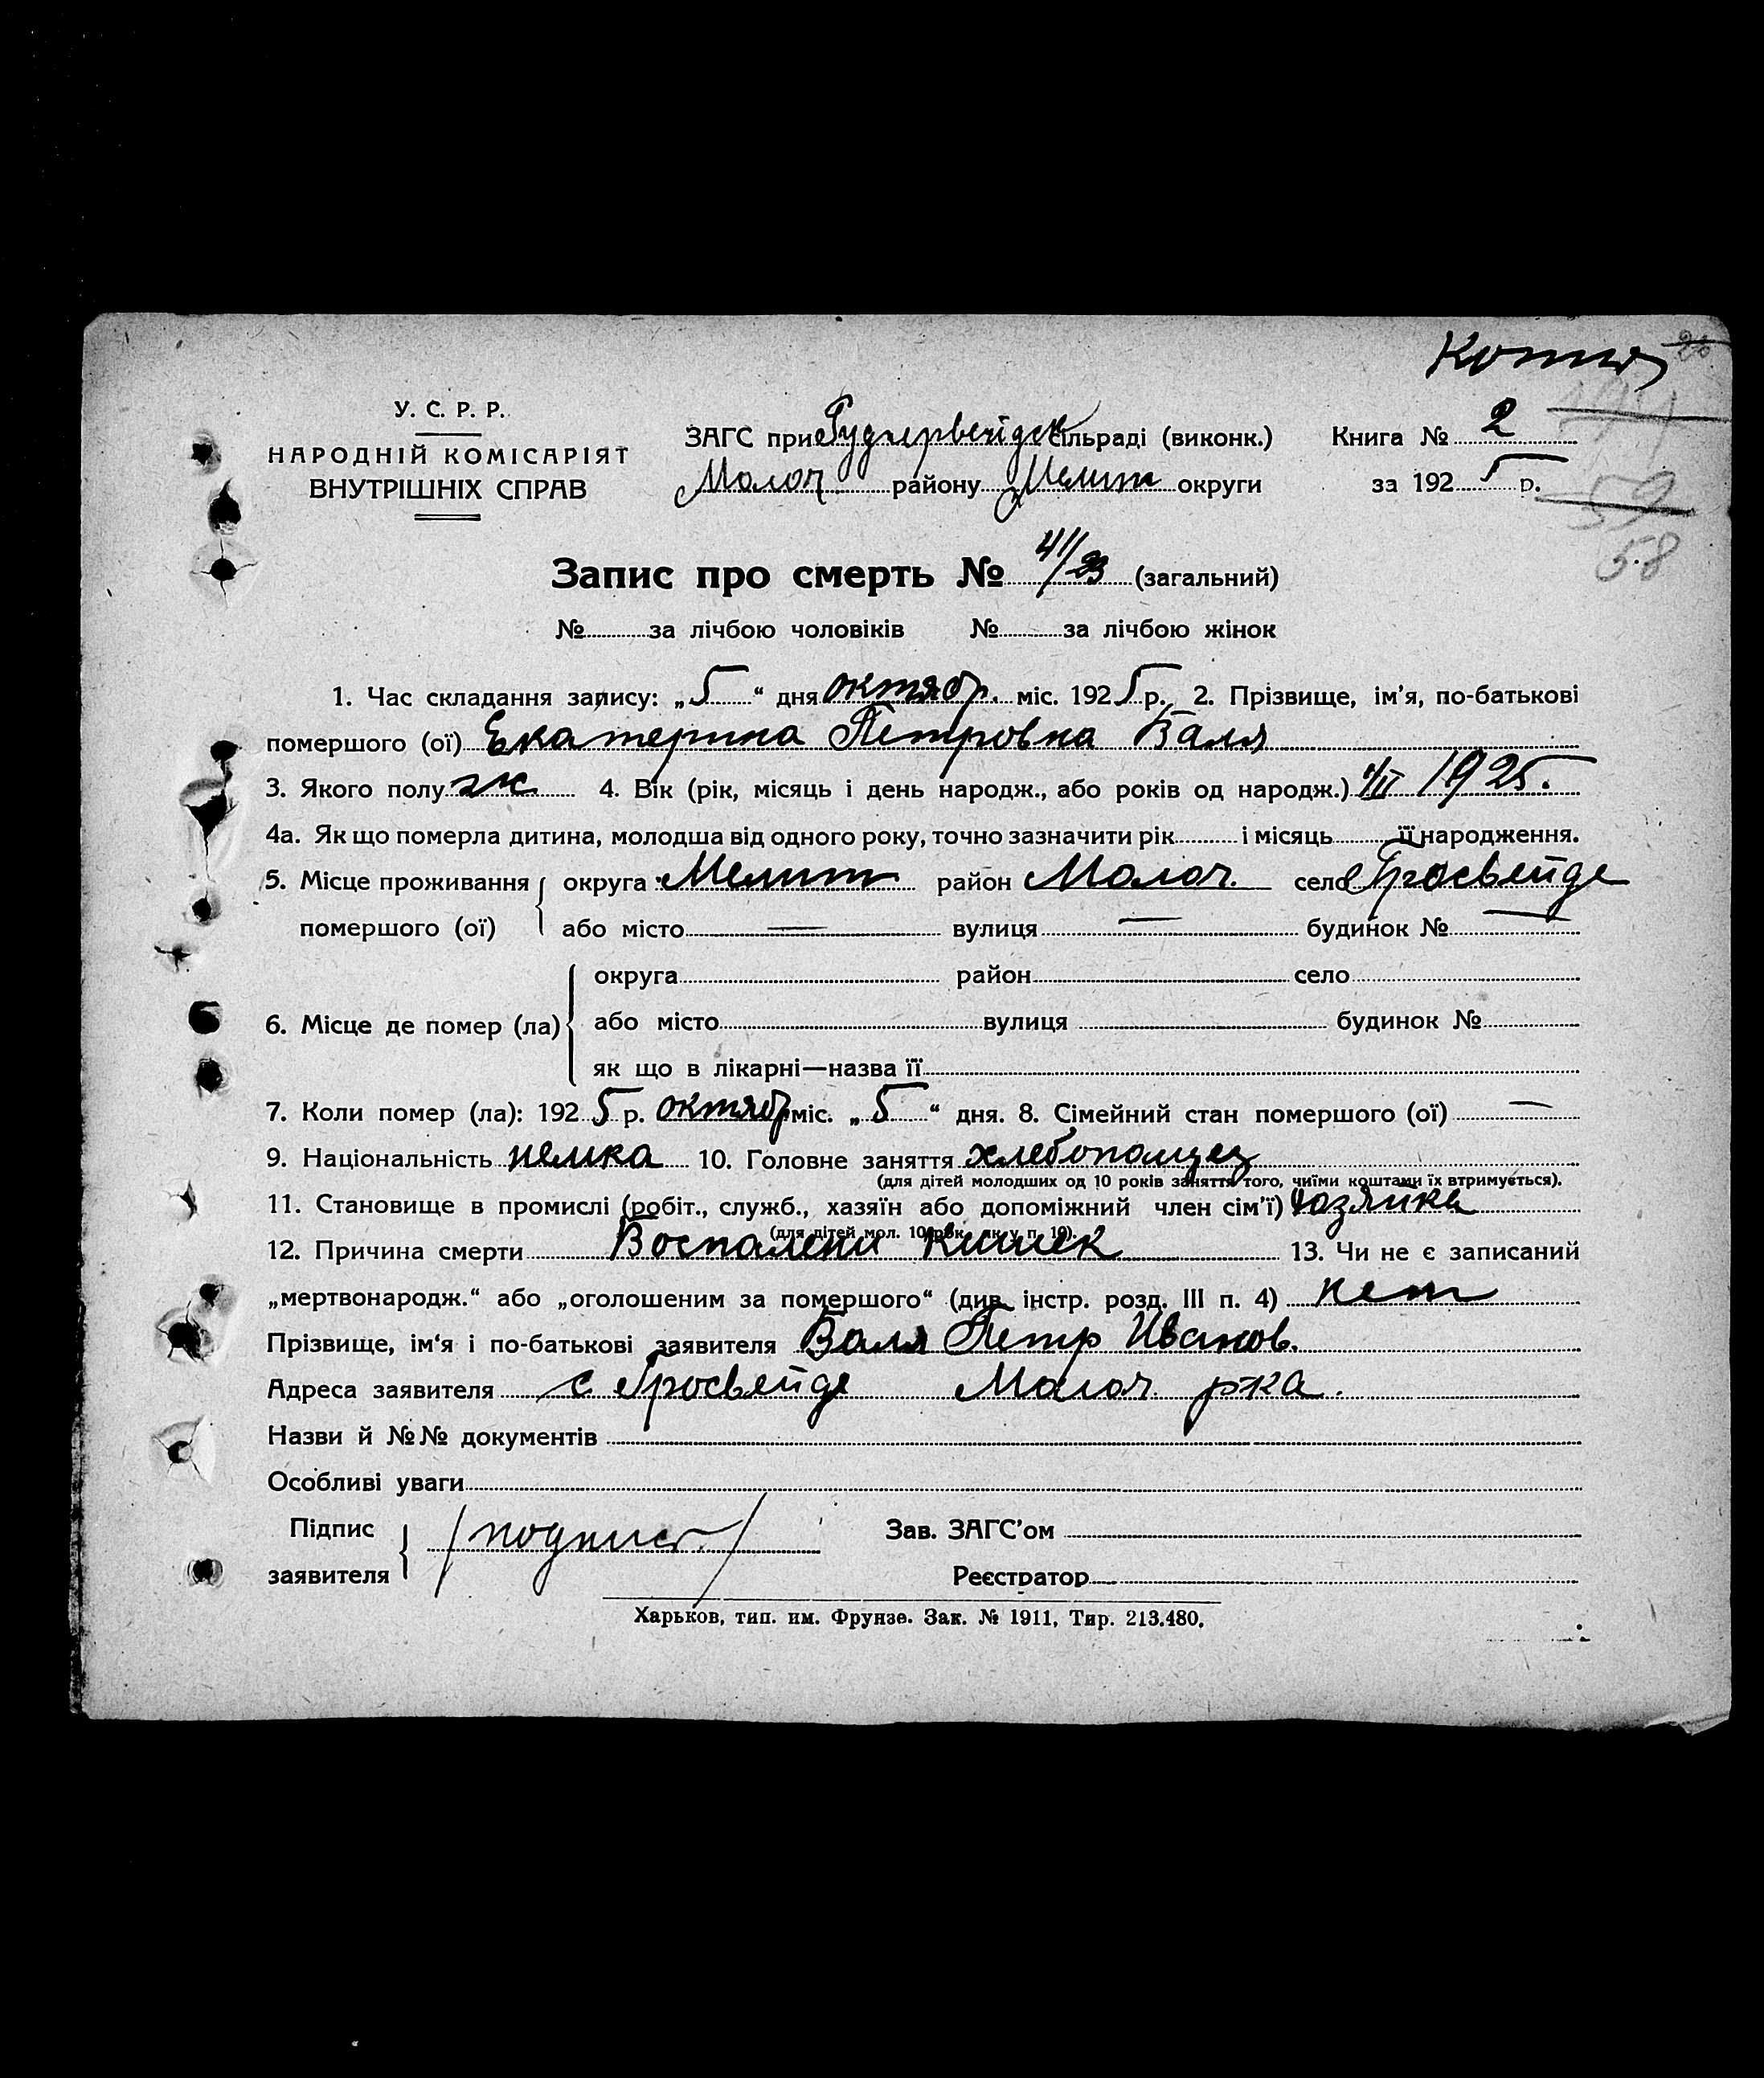 Копия
У. С. Р. Р.
НАРОДНІЙ КОМІСАРІЯТ
ВНУТРІШНІХ СПРАВ
ЗАГС при сільраді (виконк.)
Молоч району Мелит округи
Книга № 2
за 192 5 р.
59
58
Запис про смерть № 41/23 (загальний)
№ за лічбою чоловіків № за лічбою жінок
1. Час складання запису: „ 5 “ дня октябр. міс. 192 5 р. 2. Прізвище, ім’я, по-батькові
помершого (ої) Екатерина Петровна Валл
3. Якого полу ж 4. Вік (рік, місяць і день народж., або років од народж.) 1/III 1925.
4а. Як що померла дитина, молодша від одного року, точно зазначити рік і місяць її народження.
5. Місце проживання округа Мелит район Молоч. село Гросвейде
помершого (ої) або місто — вулиця — будинок № —
округа район село
6. Місце де помер (ла) або місто вулиця будинок №
як що в лікарні—назва її
7. Коли помер (ла): 192 5 р. октябр міс. „ 5 “ дня. 8. Сімейний стан помершого (ої) —
9. Національність немка 10. Головне заняття хлебопашец
(для дітей молодших од 10 років заняття того, чиїми коштами їх втримується).
11. Становище в промислі (робіт., служб., хазяїн або допоміжний член сім’ї) хозяйка
(для дітей мол. 10 рок. як у п. 10).
12. Причина смерти Воспалени кишек 13. Чи не є записаний
„мертвонародж.“ або „оголошеним за помершого“ (див. інстр. розд. III п. 4) нет
Прізвище, ім‘я і по-батькові заявителя Валл Петр Иванов.
Адреса заявителя с Гросвейде Молоч р-ка.
Назви й №№ документів
Особливі уваги
Підпис заявителя /подпись/
Зав. ЗАГС’ом
Реєстратор
Харьков, тип. им. Фрунзе. Зак. № 1911, Тир. 213.480.